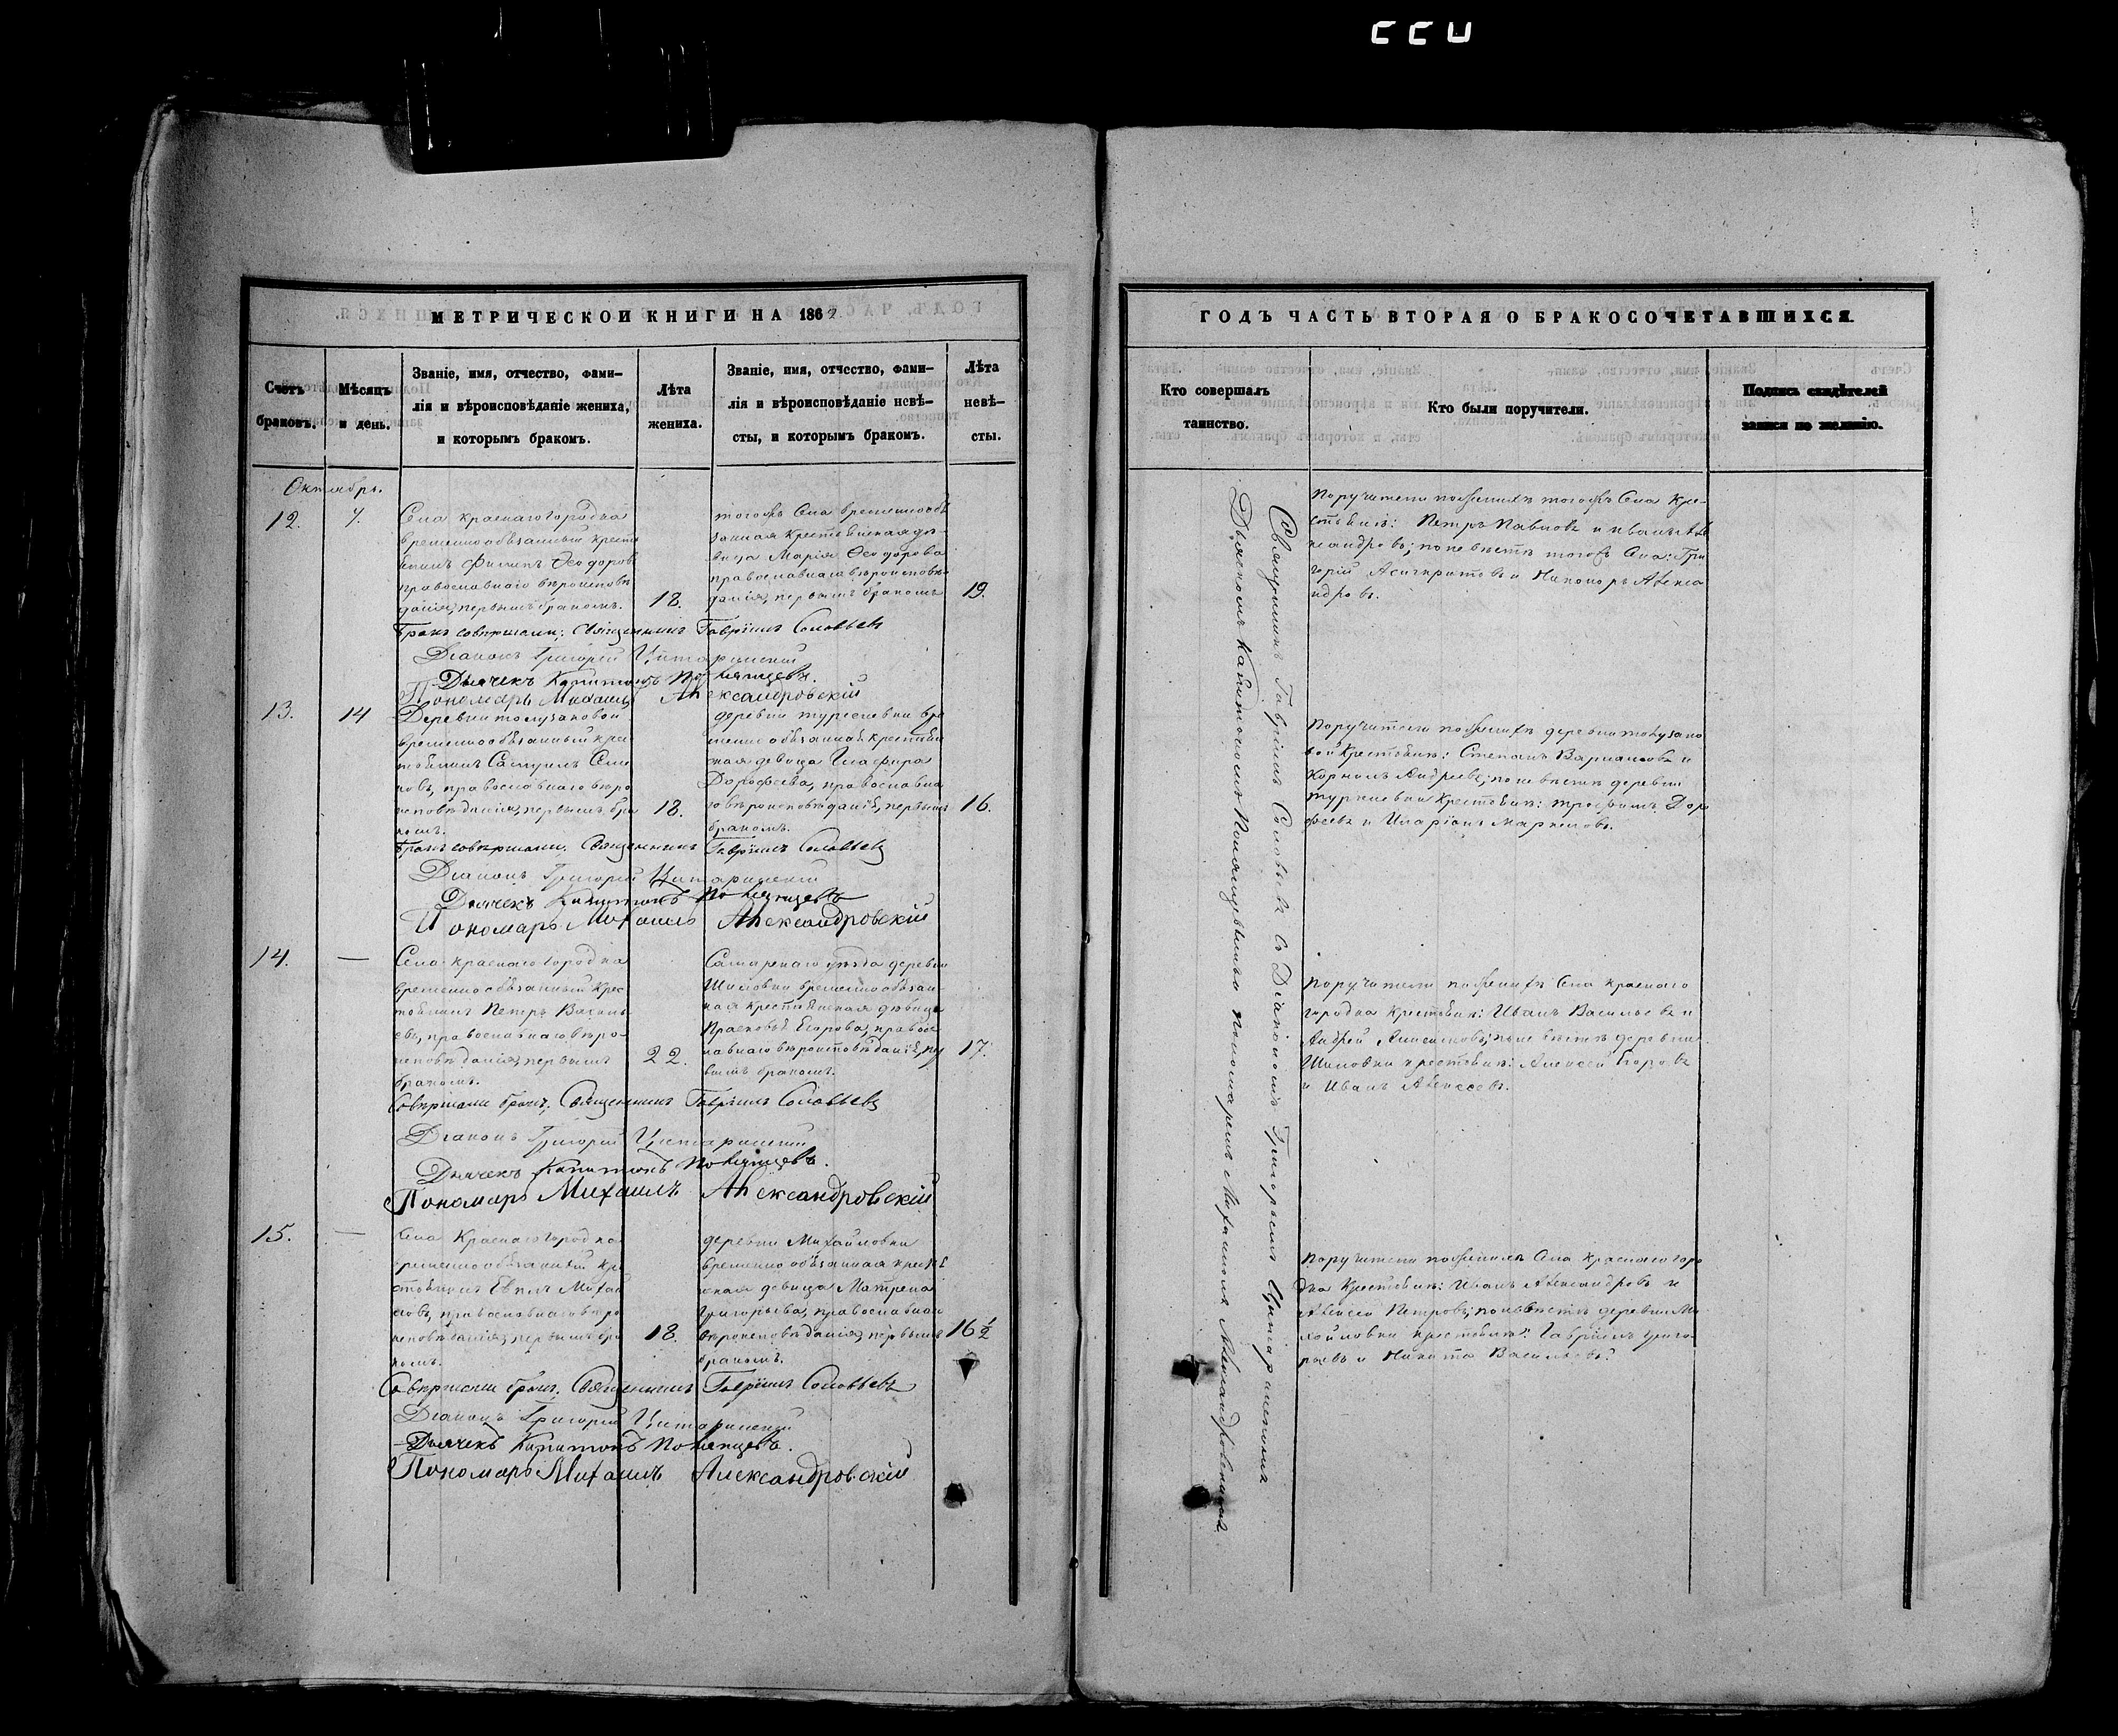 МЕТРИЧЕСКОЙ КНИГИ НА 1862
Счетъ браковъ.
Мѣсяцъ и день.
Званіе, имя, отчество, фами-
лія и вѣроисповѣданіе жениха,
и которымъ бракомъ.
Лѣта
жениха.
Званіе, имя, отчество, фами-
лія и вѣроисповѣданіе невѣ-
сты, и которымъ бракомъ.
Лѣта
невѣ-
сты.
Октябрь.
12.
7.
Села Краснаго Городка
временно обязанный крестья
нинъ Филипъ Ѳеодоровъ
православнаго вѣроисповѣ
данія, первымъ бракомъ.
18.
тогожъ Села временнообя
занная крестьянская дѣ-
вица Марія Ѳеодорова
православнаго вѣроисповѣ-
данія, первымъ бракомъ
19.
Бракъ совершали: Священникъ Гавріилъ Соловьевъ
Діаконъ Григорій Цитаринскій
Дьячекъ Капитонъ
Пономарь Михаилъ Александровскій
13.
14
Деревни
временнообязанный крес
тьянинъ Самуилъ Семе
новъ, православнаго вѣро
исповѣданія, первымъ бра
комъ.
18.
деревни вре
менно обязанная крестьян
ская девица Глафира
Дорофѣева, православна
го вѣроисповѣданія, первымъ
бракомъ.
16.
Бракъ совершали: Священникъ Гавріилъ Соловьевъ
Діаконъ Григорій Цитаринскій
Дьячекъ Капитонъ
Пономарь Михаилъ Александровскій
14.
—
Села Краснаго Городка
временнообязанный крес
тьянинъ Петръ Василь
евъ, православнаго вѣро-
исповѣданія, первымъ
бракомъ.
22.
Самарскаго уѣзда деревни
Шиловки временнообязан-
ная крестьянская дѣвица
Прасковья Егорова, правос
лавнаго вѣроисповѣданія, пер
вымъ бракомъ.
17.
Совершали бракъ: Священникъ Гавріилъ Соловьевъ
Діаконъ Григорій Цитаринскій
Дьячекъ Капитонъ
Пономарь Михаилъ Александровскій
15.
—
Села Краснаго Городка
временно обязанный кре
стьянинъ Евпл Михай
ловъ, православнаго вѣро
исповѣданія, первымъ бра
комъ.
18.
деревни Михайловки
временно обязанная крестья
нская девица Матрена
Григорьева, православнаго
вѣроисповѣданія, первымъ
бракомъ.
16 ½
Совершали бракъ: Священникъ Гавріилъ Соловьевъ
Діаконъ Григорій Цитаринскій
Дьячекъ Капитонъ
Пономарь Михаилъ Александровскій
ГОДЪ ЧАСТЬ ВТОРАЯ О БРАКОСОЧЕТАВШИХСЯ.
Кто совершалъ
таинство.
Кто были поручители.
Подпись свидѣтелей
записи по желанію.
Священникъ Гавріилъ Соловьевъ съ Діакономъ Григорьемъ Цитаринскимъ
Дьячкомъ Капитономъ Пономаремъ Михаиломъ Александровскимъ
Поручители по женихѣ тогожъ Села кре-
стьяне: Петръ Павловъ и Иванъ Але
ксандровъ; по невѣстѣ тогожъ Села: Гри
горій Асигкритовъ и Никоноръ Алекса
ндровъ.
Поручители по женихѣ деревни
крестьяне: Степанъ и
Андреевъ; по невѣстѣ деревни
крестьяне: Трофимъ Доро
фѣевъ и Иларіонъ
Поручители по женихѣ Села Краснаго
городка крестьяне: Иванъ Васильевъ и
Андрей по невѣстѣ деревни
Шиловки крестьяне: Алексей Егоровъ
и Иванъ Алексеевъ.
Поручители по женихѣ Села Краснаго горо
дка крестьяне: Иванъ Александровъ и
Алексей Петровъ; по невѣстѣ деревни Ми
хайловки крестьяне: Гавріилъ Григо-
рьевъ и Никита Васильевъ.